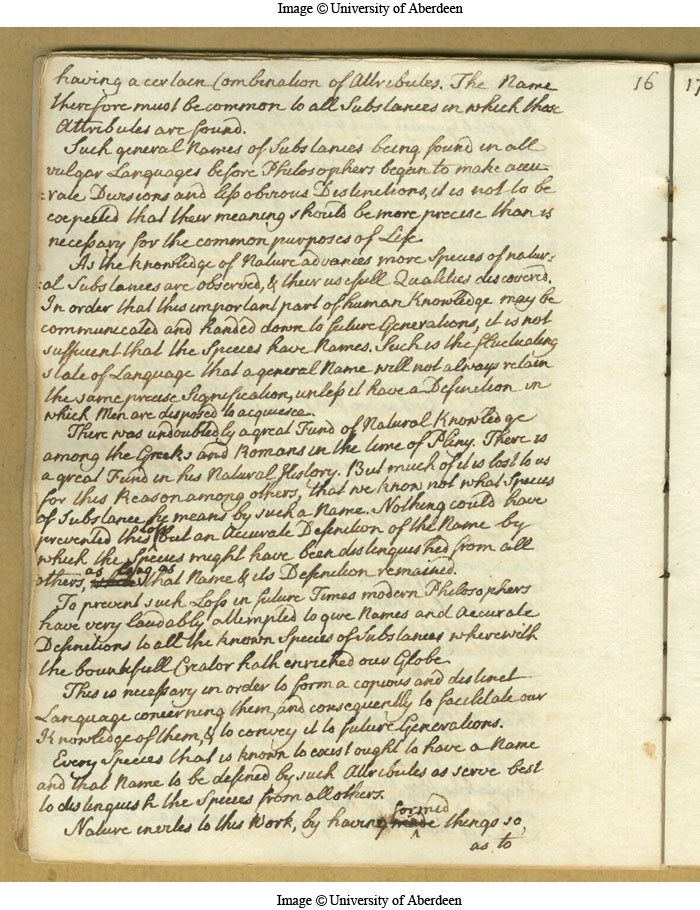 Image © University of Aberdeen
16
17
having a certain Combination of Attributes. The Name
therefore must be common to all Substances in which those
Attributes are found.
Such general Names of Substances being found in all
vulgar Languages before Philosophers began to make accu-
:rate Divisions and less obvious Distinctions, it is not to be
expected that their meaning should be more precise than is
necessary for the common purposes of Life.
As the knowledge of Nature advances more Species of natur:
:al Substances are observed, & their usefull Qualities discovered.
In order that this important part of human Knowledge may be
communicated and handed down to future Generations, it is not
sufficient that the Species have Names. Such is the fluctuating
state of Language that a general Name will not always retain
the same precise Signification, unless it have a Definition in
which Men are disposed to acquiesce.
There was undoubtedly a great Fund of Natural Knowledge
among the Greeks and Romans in the time of Pliny. There is
a great Fund in his Natural History. But much of it is lost to us
for this Reason among others, that we know not what Species
of Substance he means by such a Name. Nothing could have
prevented this loss but an Accurate Definition of the Name by
which the Species might have been distinguished from all
others, as long as that Name & its Definition remained.
To prevent such Loss in future Times modern Philosophers
have very laudably attempted to give Names and accurate
Definitions to all the known Species of Substances wherewith
the bountifull Creator hath enriched our Globe.
This is necessary in order to form a copious and distinct
Language concerning them, and consequently to facilitate our
Knowledge of them, & to convey it to future Generations.
Every Species that is known to exist ought to have a Name
and that Name to be defined by such Attributes as serve best
to distinguish the Species from all others.
Nature invites to this Work, by having made formed things so,
as to
Image © University of Aberdeen